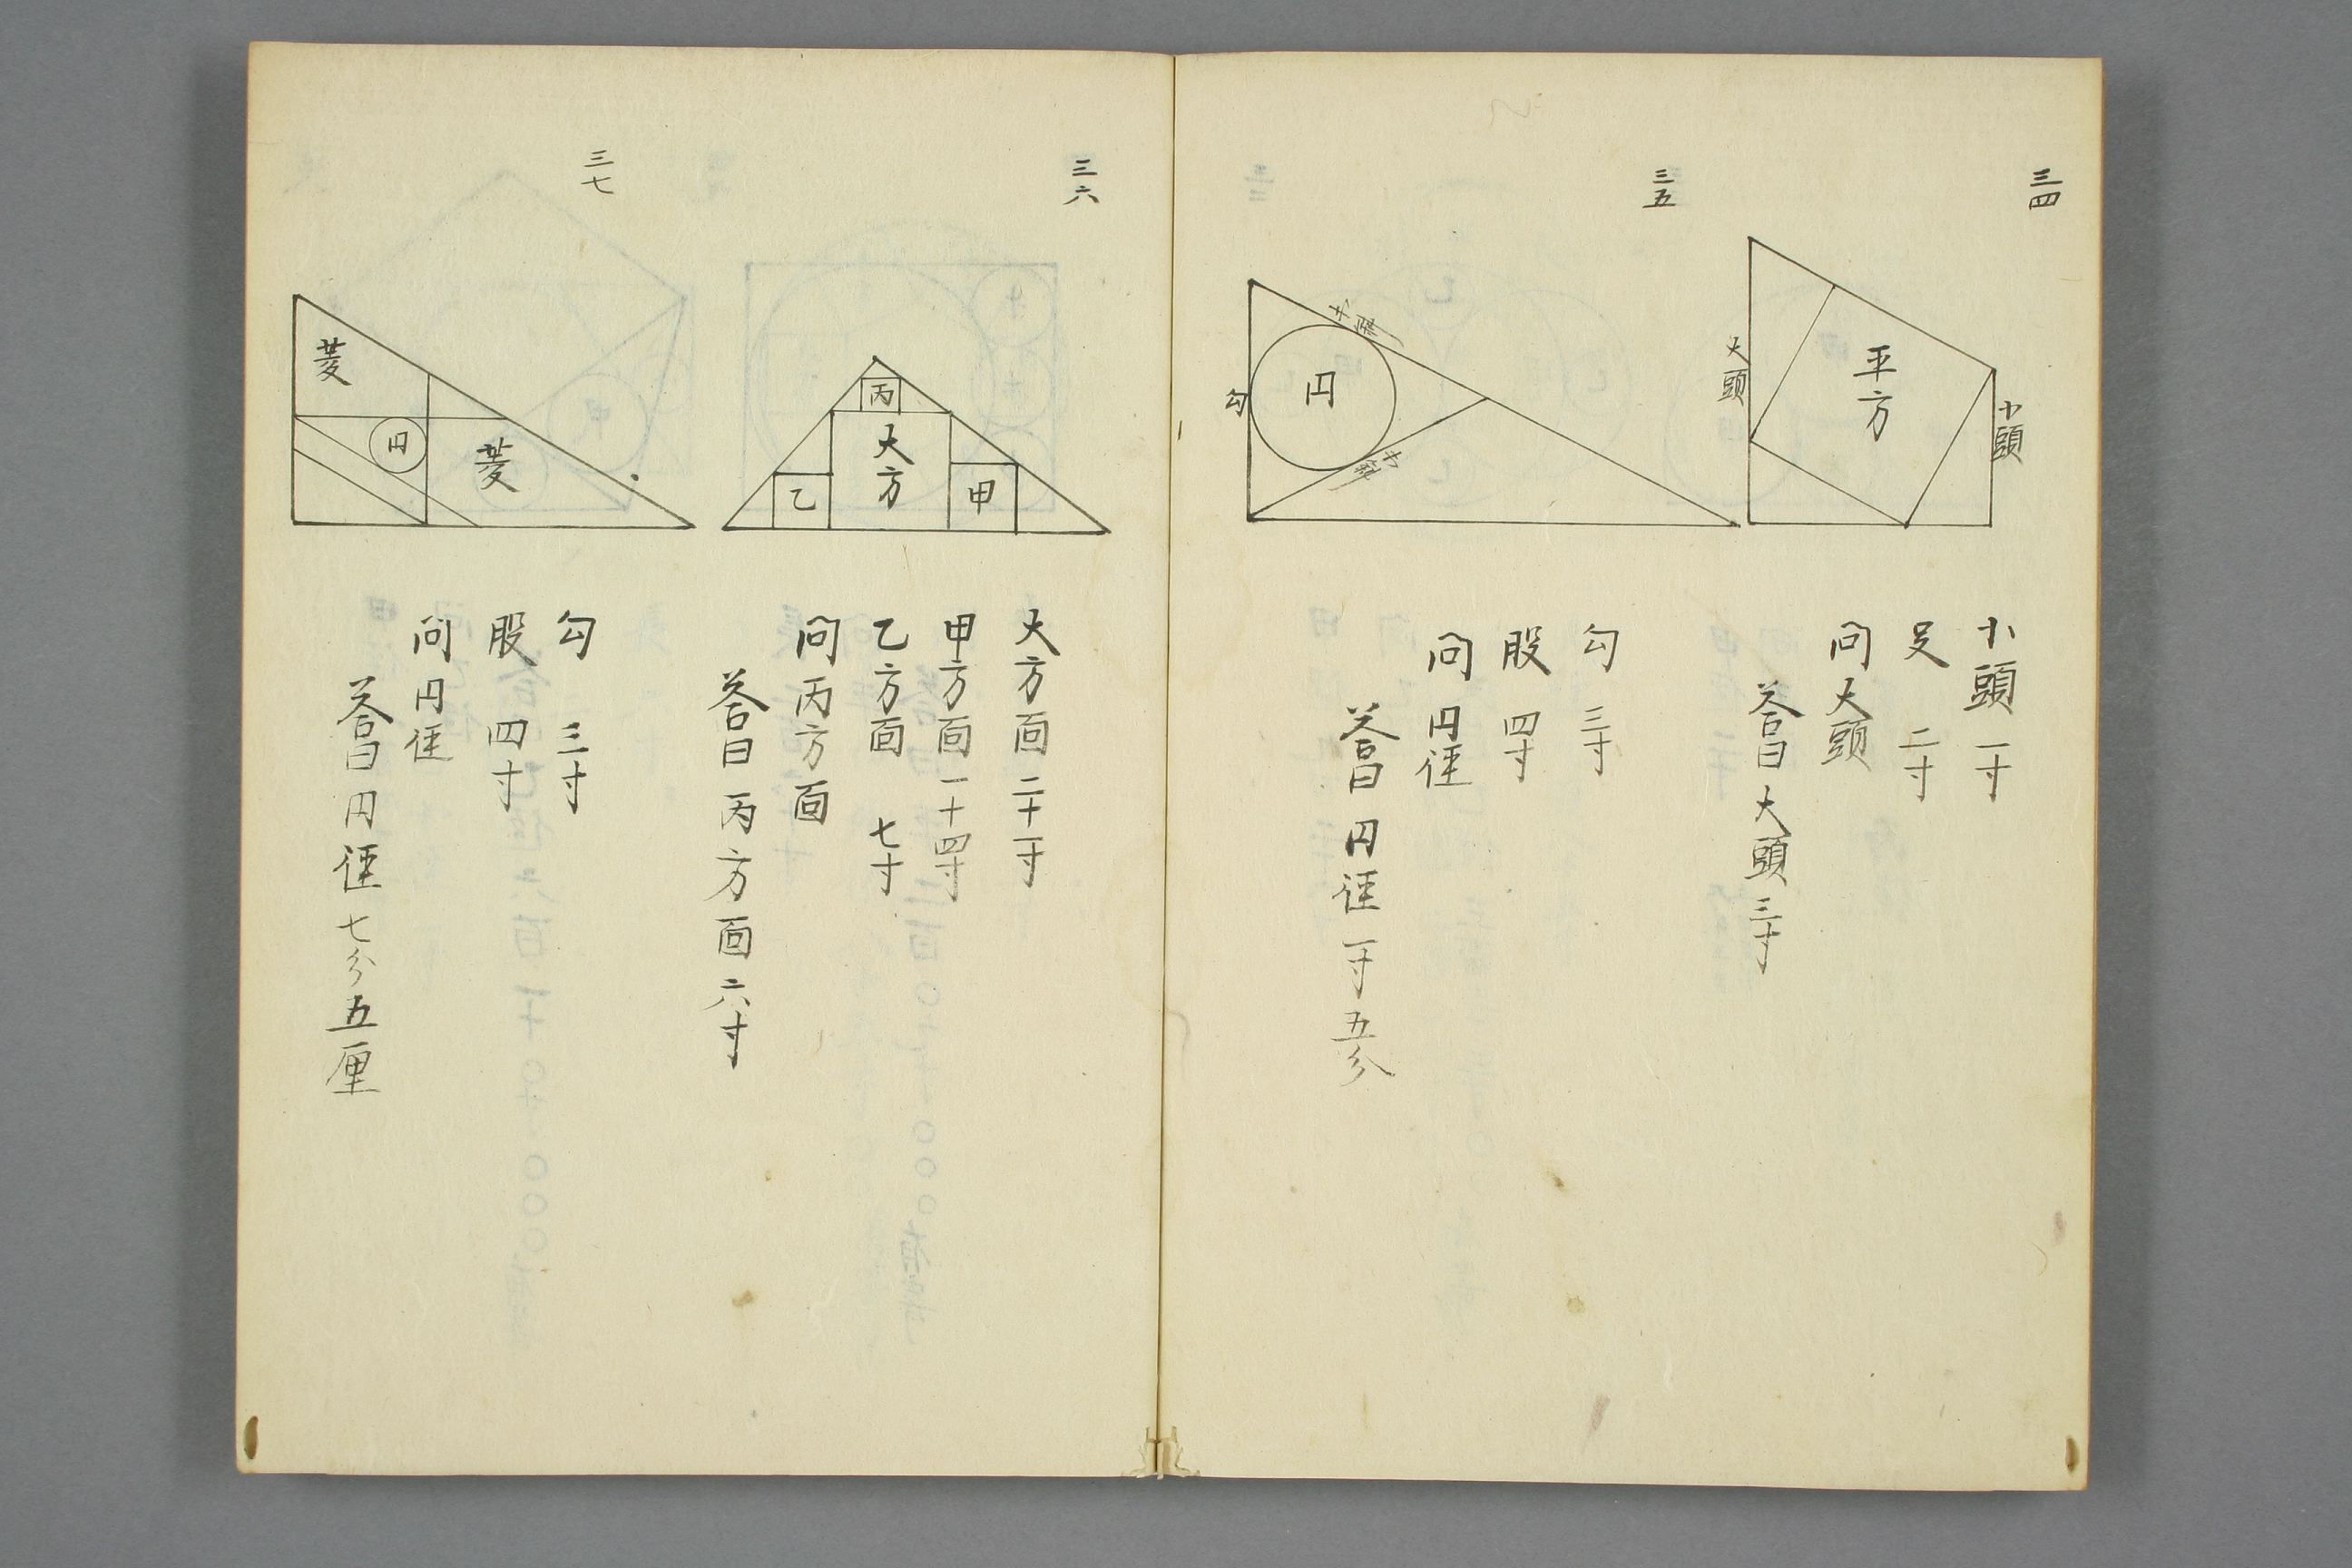 三四
大頭
平方
小頭
小頭 一寸
旲 二寸
問大頭
答曰 大頭三寸
三五
勾
円
勾 三寸
股 四寸
問 円径
答曰 円径 一寸五分
三六
丙
大方
乙
甲
大方面 二十一寸
甲方面 一十四寸
乙方面 七寸
問 丙方面
答曰 丙方面 六寸
三七
菱
円
菱
勾 三寸
股 四寸
問 円径
答曰 円径 七分五厘